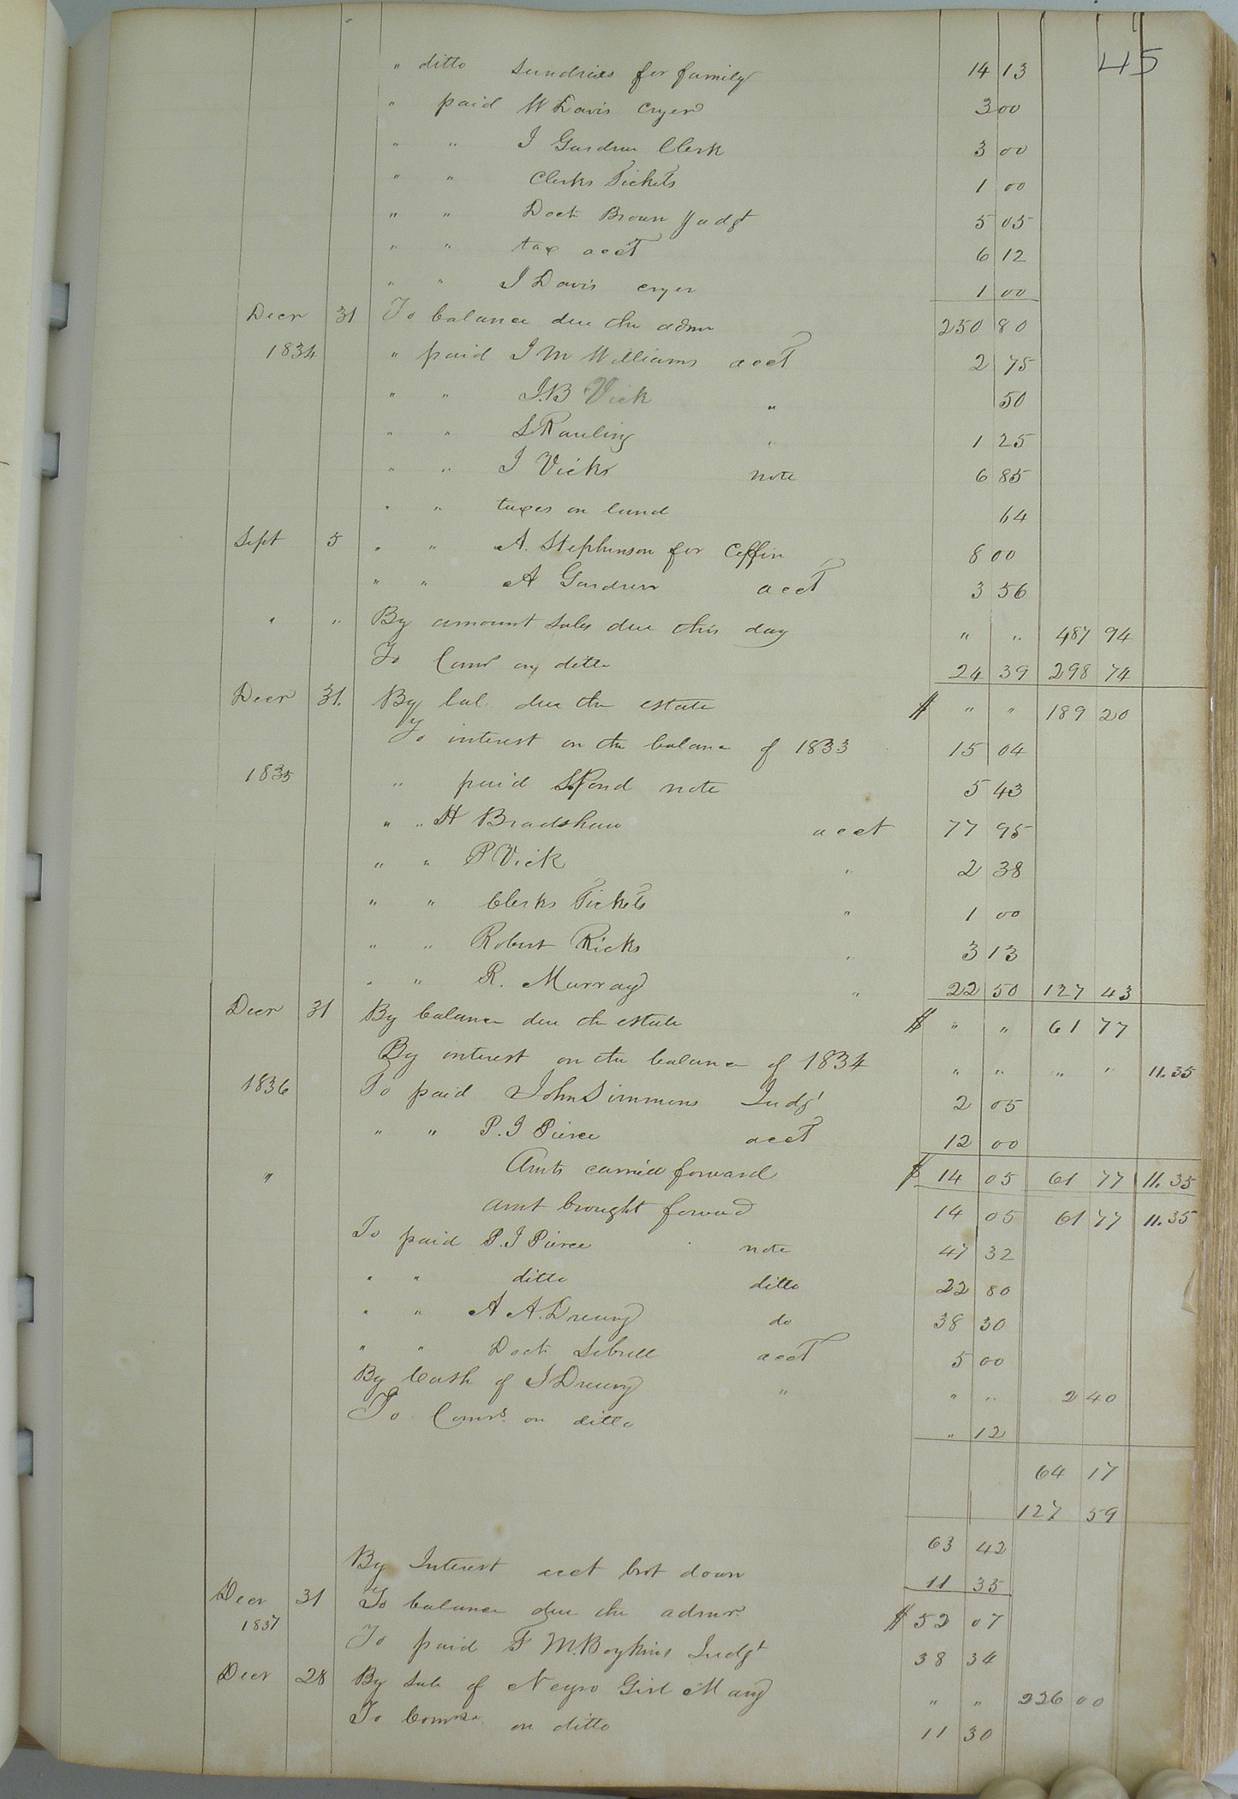 45
" ditto sundries for family 14 13
" paid W Davis cryer 3 00
" " J Gardner Clerk 3 00
" " Clerks Tickets 1 00
" " Doct Brown Judgt 5 05
" " tax acct 6 12
" " J Davis cryer 1 00
Decr 31 To balance due the admr 250 80
1834 " paid J M Williams acct 2 75
" " J.B Vick " 50
" " S Rawling " 1 25
" " J Vicks note 6 85
" " taxes on land 64
Sept 5 " " A. Stephenson for Coffin 8 00
" " A Gardner acct 3 56
" " By amount sales due this day " " 487 94
To Comr on ditto 24 39 298 74
Decr 31. By bal. due the estate $ " " 189 20
To interest on the balance of 1833 15 04
1835 " paid S Pond note 5 43
" " H Bradshaw acct 77 95
" " P Vick " 2 38
" " Clerks Tickets " 1 00
" " Robert Ricks " 3 13
" " R. Murray " 22 50 127 43
Decr 31 By balance due the estate $ " " 61 77
By interest on the balance of 1834 " " " " 11.35
1836 To paid John Simmons Judgt 2 05
" " P. J Pierce acct 12 00
" Amts carried forward $ 14 05 61 77 11.35
amt brought forward 14 05 61 77 11.35
To paid P. J Pierce note 47 32
" " ditto ditto 22 80
" " A A. Drewry do 38 30
" " Doct Sebrell acct 5 00
By Cash of J Drewry " " " 2 40
To Comrs. on ditto " 12
64 17
127 59
63 42
By Interest acct brot down 11 35
Decr 31 To balance due the admr. $ 52 07
1837 To paid F M. Boykins Judgt 38 34
Decr 28 By sale of Negro Girl Mary " " 226 00
To Comrs. on ditto 11 30